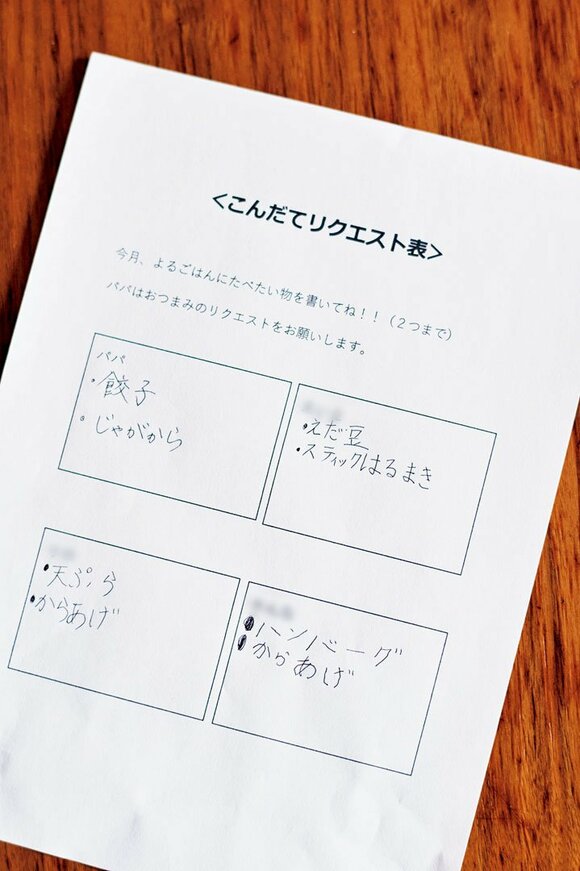 <こんだてリクエスト表>
今月、よるごはんにたべたい物を書いてね！！（２つまで）
パパはおつまみのリクエストをお願いします。
パパ
・餃子
・じゃがから
・えだ豆
・スティックはるまき
・天ぷら
・からあげ
・ハンバーグ
・からあげ